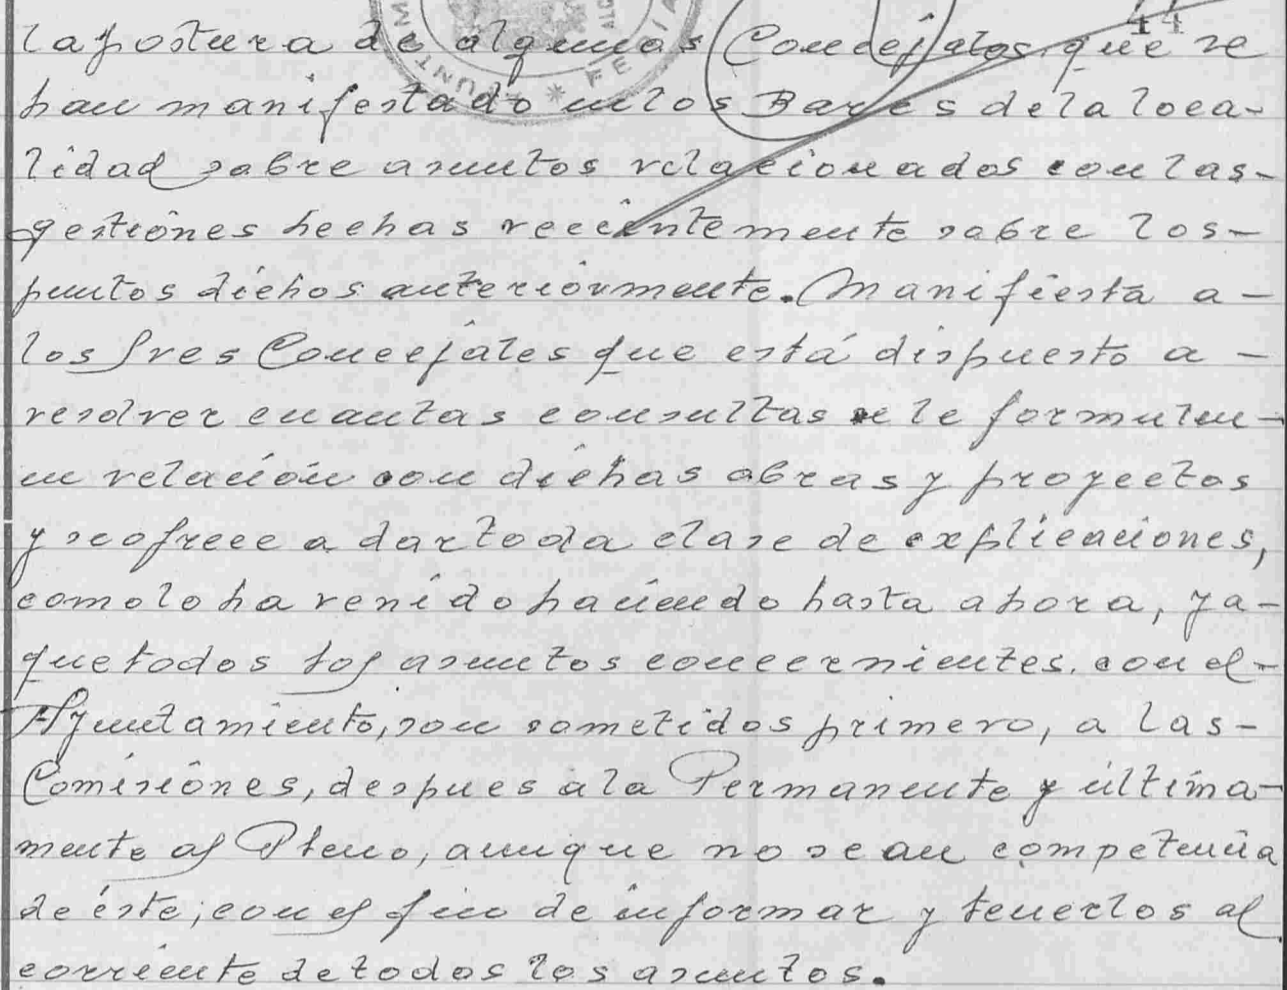 44
la postura de algunos Concejales que se
han manifestado en los Bares de la loca-
lidad sobre asuntos relacionados con las-
gestiones hechas recientemente sobre los-
puntos dichos anteriormente. Manifiesta a-
los Sres Concejales que está dispuesto a-
resolver cuantas consultas se le formulen-
en relación con dichas obras y proyectos
y se ofrece a dar toda clase de explicaciones,
como lo ha venido haciendo hasta ahora, ya-
que todos los asuntos concernientes con el-
Ayuntamiento, son sometidos primero, a las-
Comisiones, despues a la Permanente y última-
mente al Pleno, aunque no sean competencia
de éste, con el fin de informar y tenerlos al
corriente de todos los asuntos.